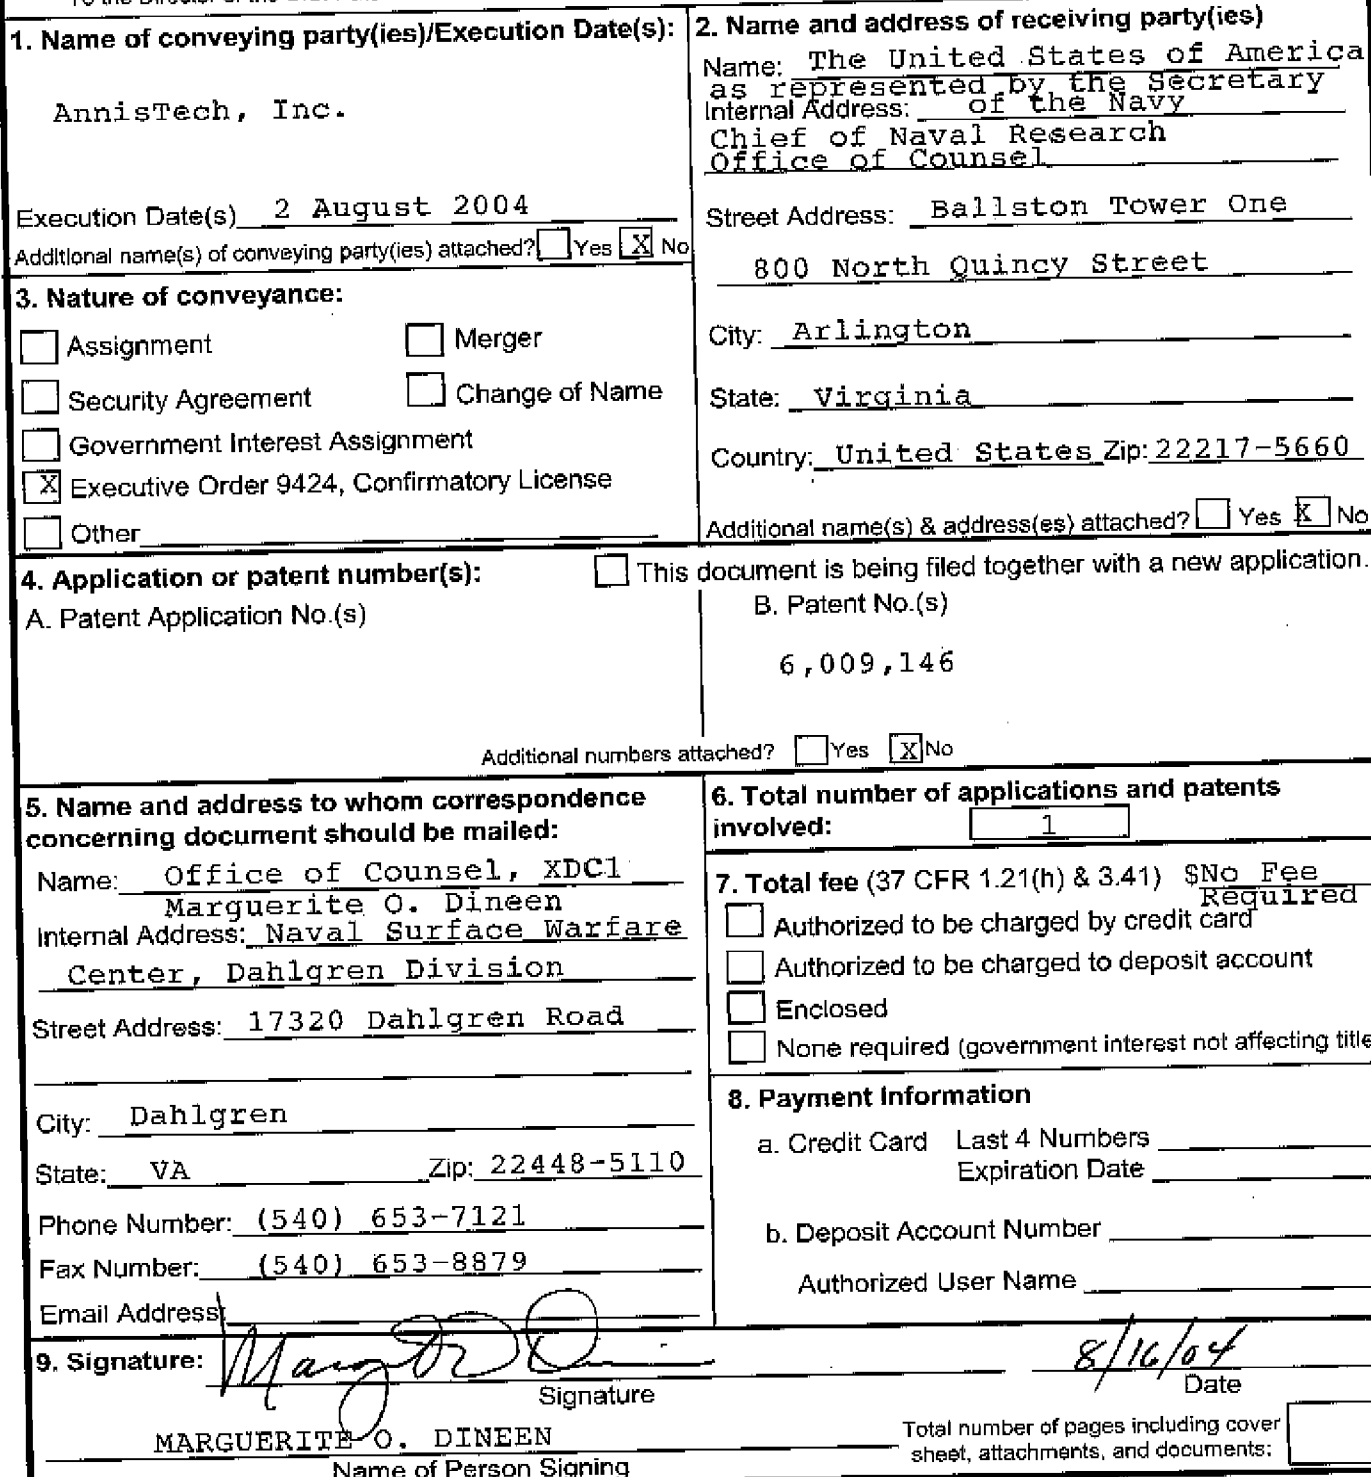 1. Name of conveying party(ies)/Execution Date(s):
AnnisTech, Inc.
Execution Date(s) 2 August 2004
Additional name(s) of conveying party(ies) attached? Yes X No
2. Name and address of receiving party(ies)
Name: The United States of America
as represented by the Secretary
Internal Address: of the Navy
Chief of Naval Research
Office of Counsel
Street Address: Ballston Tower One
800 North Quincy Street
City: Arlington
State: Virginia
Country: United States Zip: 22217-5660
Additional name(s) & address(es) attached? Yes X No
3. Nature of conveyance:
Assignment Merger
Security Agreement Change of Name
Government Interest Assignment
X Executive Order 9424, Confirmatory License
Other
4. Application or patent number(s): This document is being filed together with a new application.
A. Patent Application No.(s)
B. Patent No.(s)
6,009,146
Additional numbers attached? Yes X No
5. Name and address to whom correspondence
concerning document should be mailed:
Name: Office of Counsel, XDC1
Marguerite O. Dineen
Internal Address: Naval Surface Warfare
Center, Dahlgren Division
Street Address: 17320 Dahlgren Road
City: Dahlgren
State: VA Zip: 22448-5110
Phone Number: (540) 653-7121
Fax Number: (540) 653-8879
Email Address:
6. Total number of applications and patents
involved: 1
7. Total fee (37 CFR 1.21(h) & 3.41) $No Fee
Required
Authorized to be charged by credit card
Authorized to be charged to deposit account
Enclosed
None required (government interest not affecting title
8. Payment Information
a. Credit Card Last 4 Numbers
Expiration Date
b. Deposit Account Number
Authorized User Name
9. Signature:
Signature
8/16/04
Date
MARGUERITE O. DINEEN
Name of Person Signing
Total number of pages including cover
sheet, attachments, and documents: